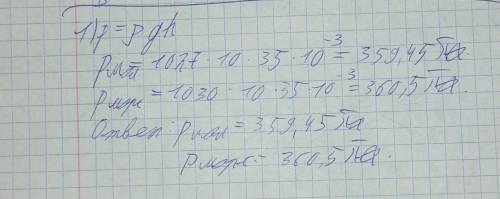 1) p = ρgh
рмол = 1027 · 10 · 35 · 10⁻³ = 359,45 Па.
рмож = 1030 · 10 · 35 · 10⁻³ = 360,5 Па.
Ответ: рмол = 359,45 Па
рмож = 360,5 Па.